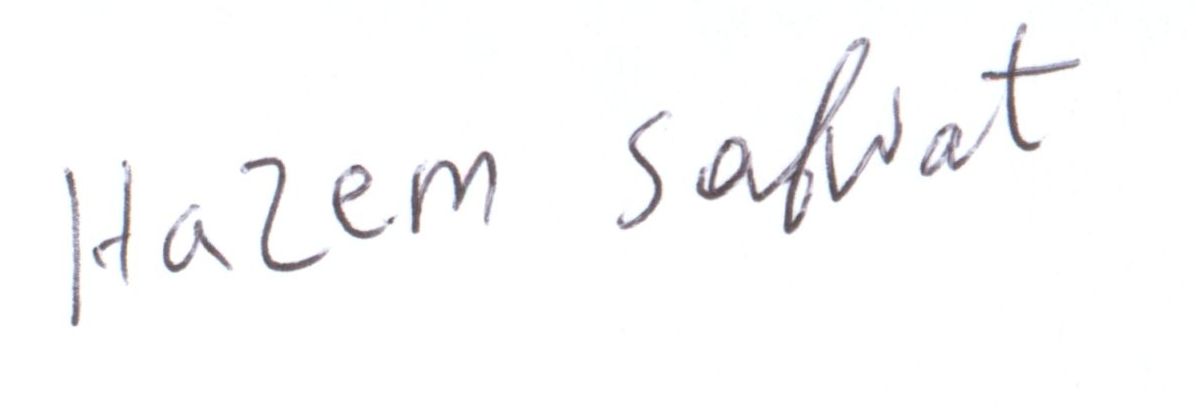 Hazem Safwat